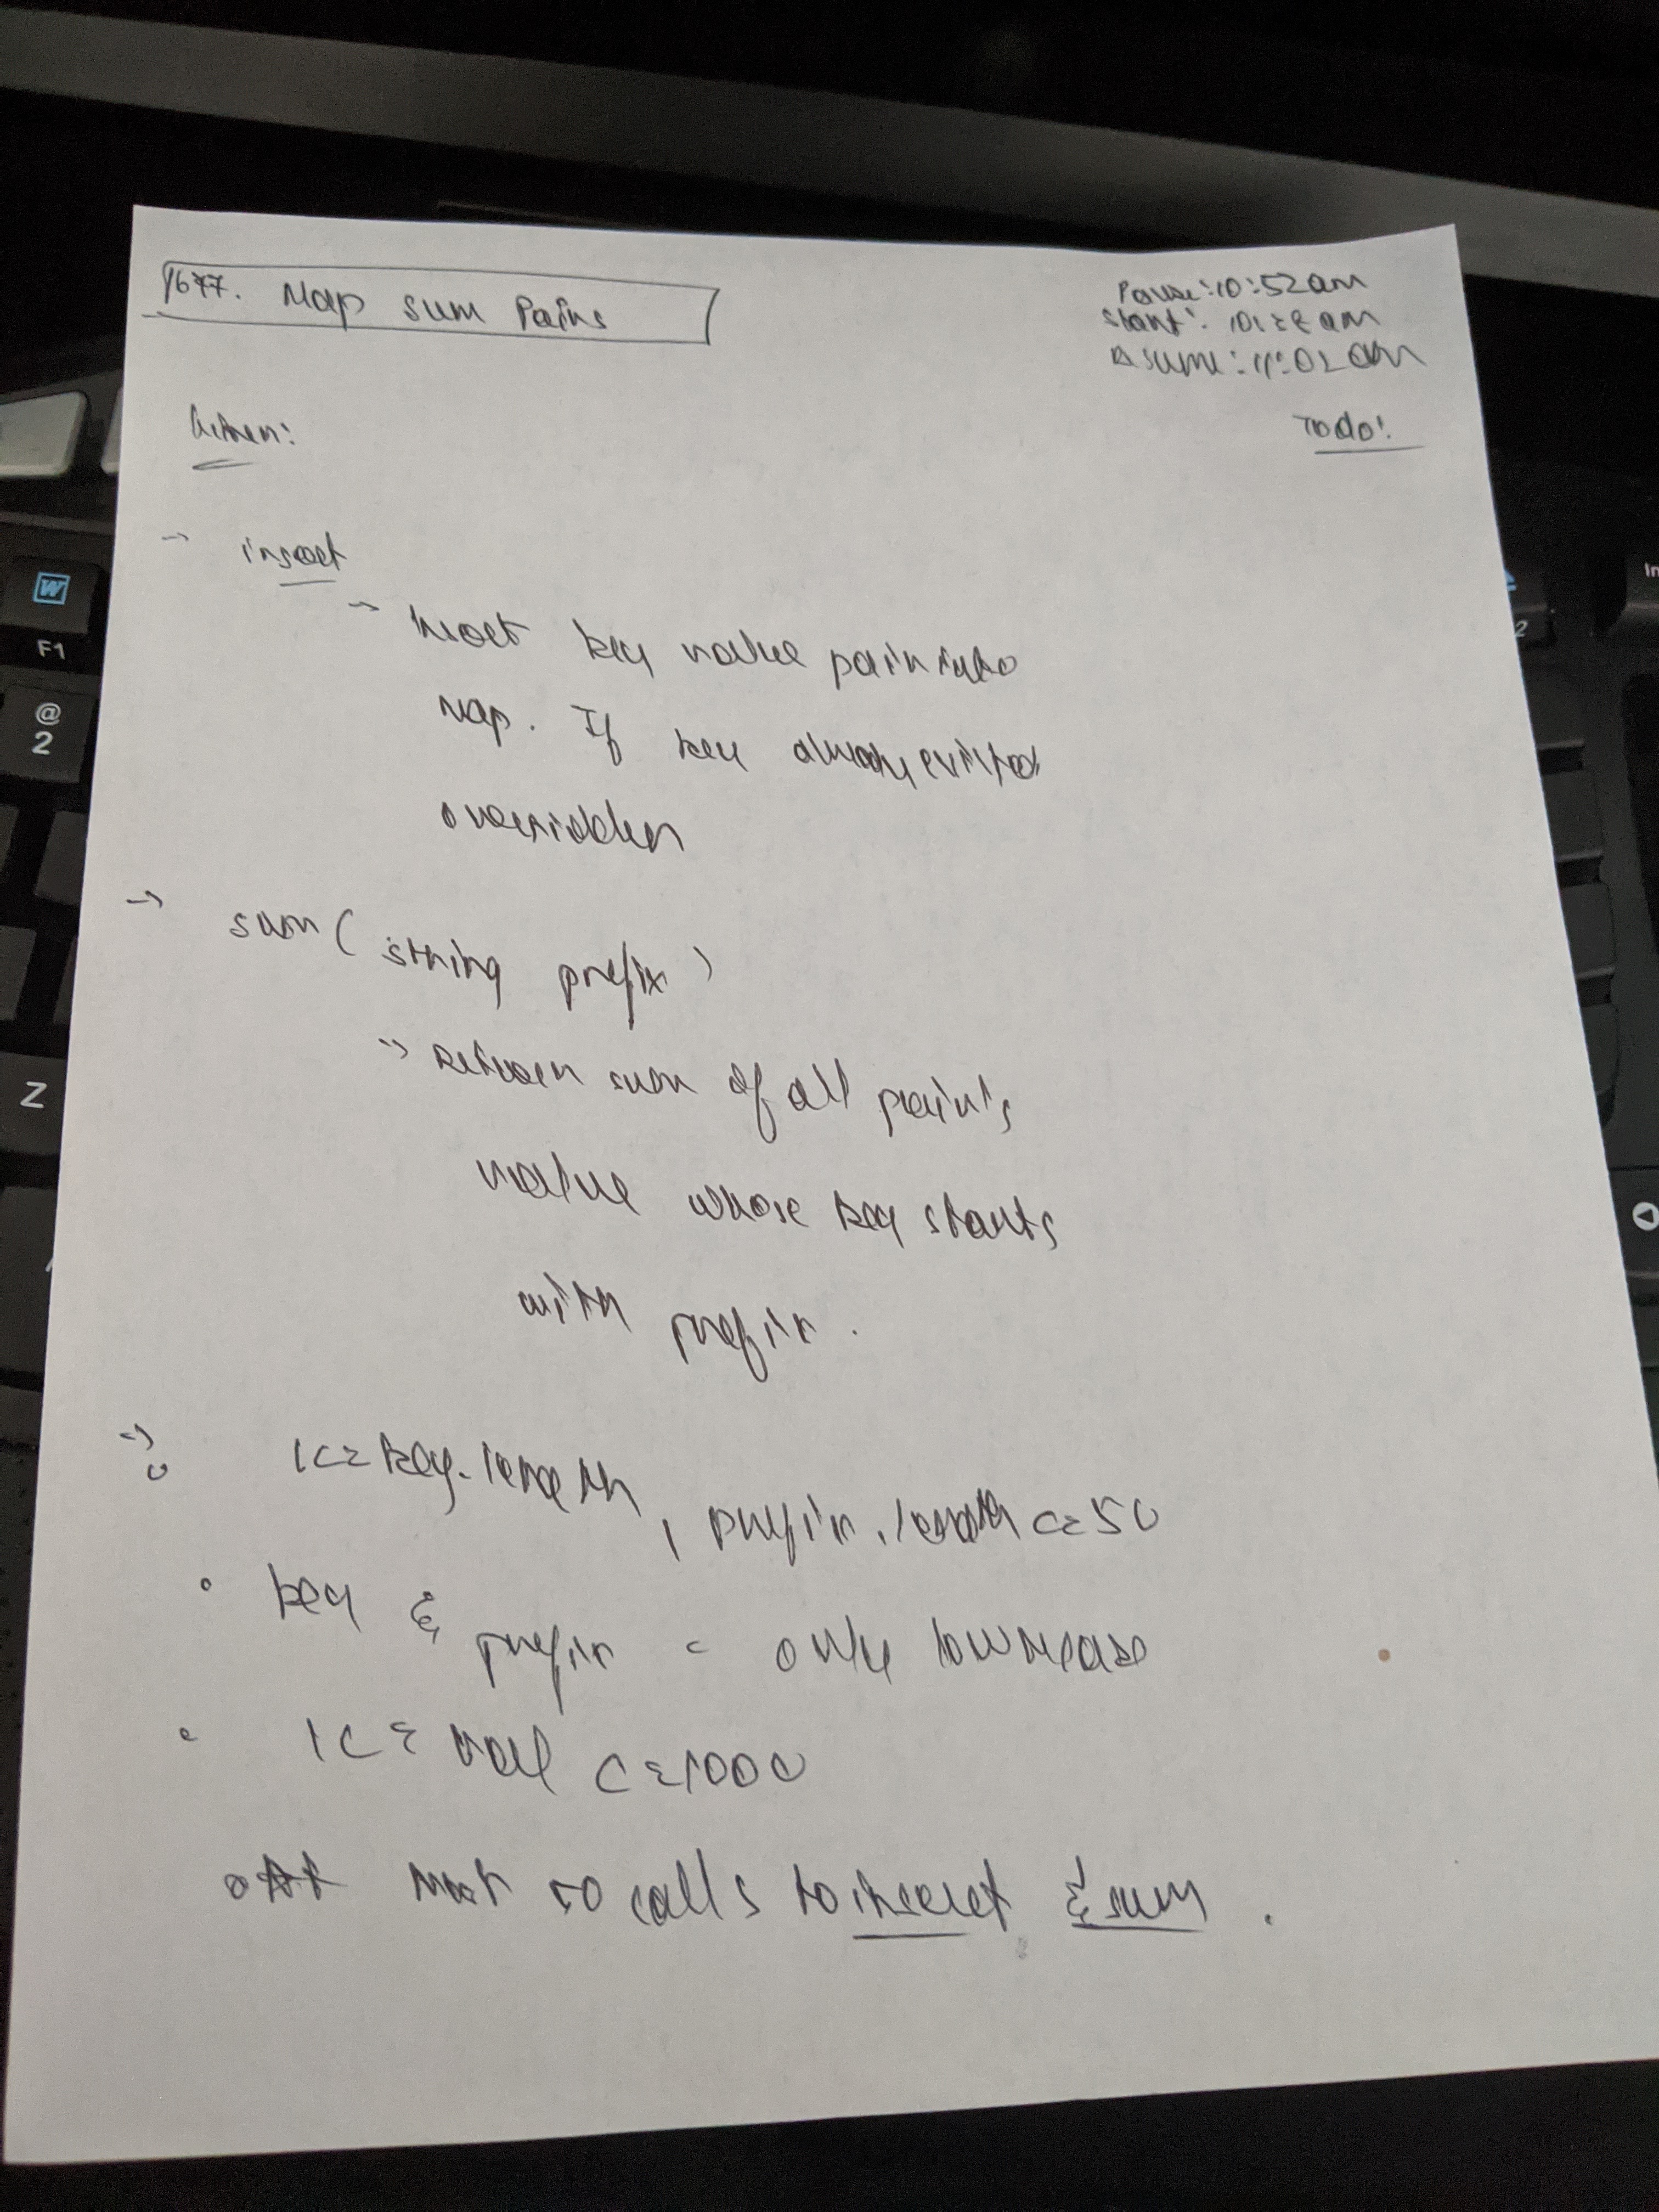 677. Map Sum Pairs
Pause: 10:52am
Start: 10:28am
Resume: 11:02am
Todo:
Given:
→ insert
→ Insert key value pair into
map. If key already existed
overridden
→ sum( string prefix )
→ Return sum of all pair's
value whose key starts
with prefix.
→
• 1<= key.length, prefix.length <= 50
• key & prefix = only lowercase
• 1<= val <= 1000
• At most 50 calls to insert & sum.
W
F1
@
2
Z
In
2